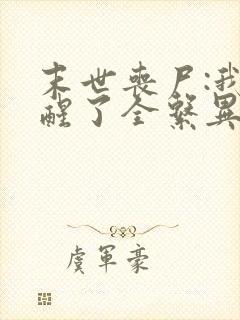 末世丧尸:我
醒了全系异
虞军豪